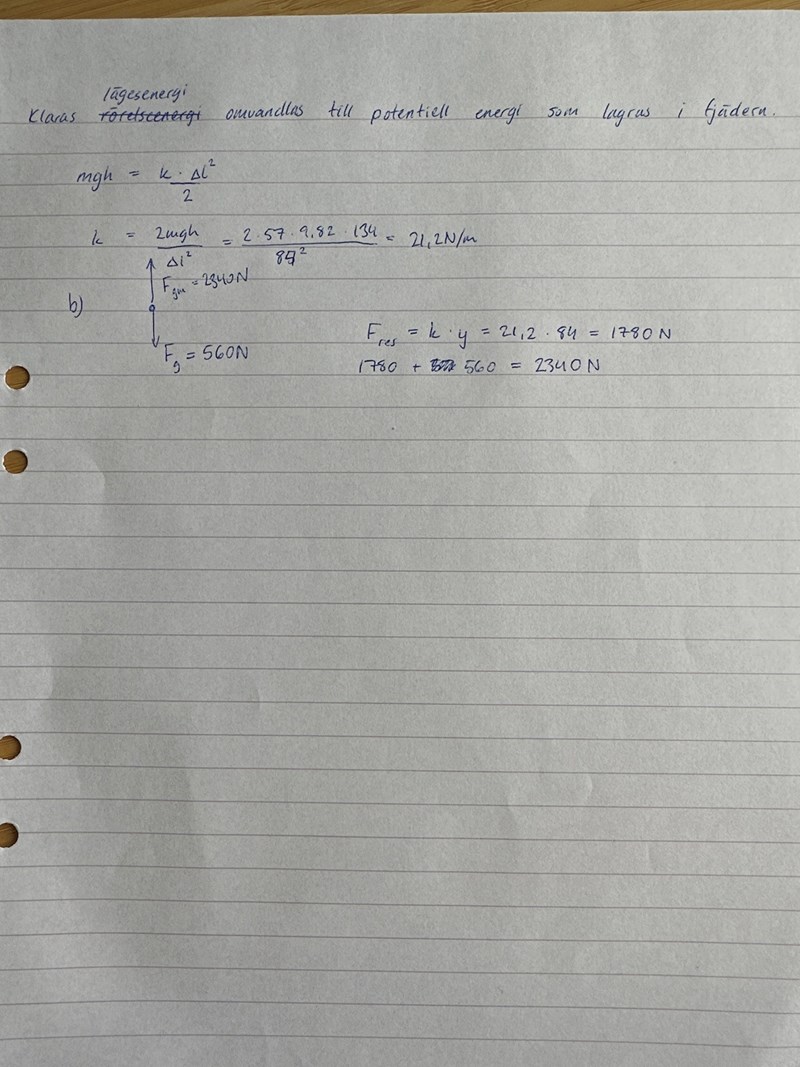 lägesenergi
Klaras rörelseenergi omvandlas till potentiell energi som lagras i fjädern.
mgh = k · Δl² / 2
k = 2mgh / Δl² = 2 · 57 · 9,82 · 134 / 84² = 21,2 N/m
b) F = 2340 N
F_g = 560 N
F_res = k · y = 21,2 · 84 = 1780 N
1780 + 560 = 2340 N